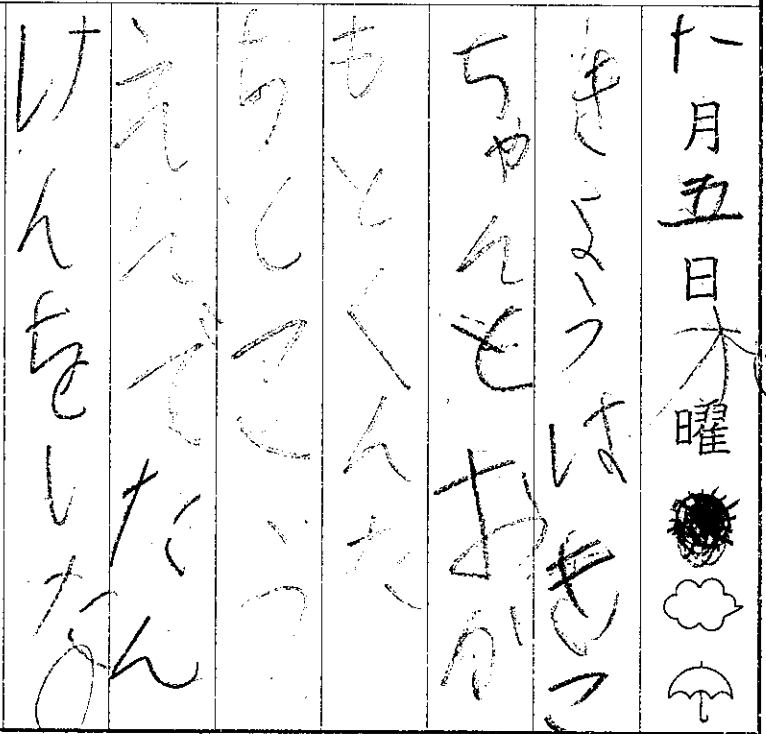 十一月五日木曜
きょうはまこ
ちゃんとおか
もとくんた
ちとこう
えんでたん
けんをした。